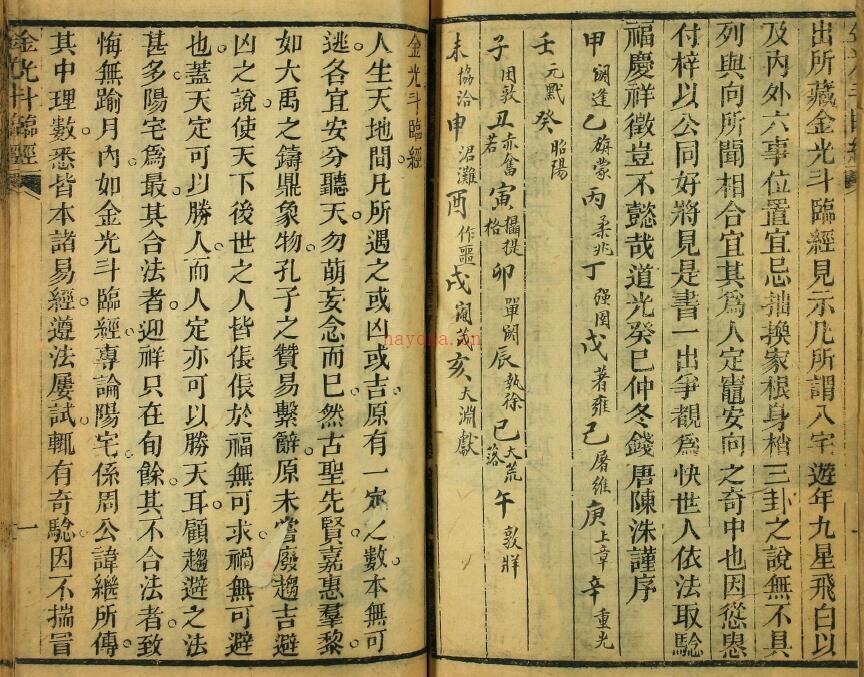 出所藏金光斗臨經見示凡所謂八宅遊年九星飛白以
及內外六事位置宜忌抽換家根身梢三卦之說無不具
列與向所聞相合宜其為人定竈安向之奇中也因慫恿
付梓以公同好將見是書一出爭覩為快世人依法取驗
福慶祥徵豈不懿哉道光癸巳仲冬錢唐陳洙謹序
甲 閼逢 乙 旃蒙 丙 柔兆 丁 强圉 戊 著雍 己 屠維 庚 上章 辛 重光
壬 元黓 癸 昭陽
子 困敦 丑 赤奮若 寅 攝提格 卯 單閼 辰 執徐 巳 大荒落 午 敦牂
未 協洽 申 涒灘 酉 作噩 戌 閹茂 亥 大淵獻
金光斗臨經
人生天地間凡所遇之或凶或吉。原有一定之數。本無可
逃。各宜安分聽天。勿萌妄念而已。然古聖先賢。嘉惠羣黎。
如大禹之鑄鼎象物。孔子之贊易繫辭。原未嘗廢趨吉避
凶之說。使天下後世之人皆倀倀於福無可求。禍無可避
也。蓋天定可以勝人。而人定亦可以勝天耳。顧趨避之法
甚多。陽宅為最。其合法者。迎祥只在旬餘。其不合法者。致
悔無踰月內。如金光斗臨經。專論陽宅。係周公諱繼所傳。
其中理數悉皆本諸易經。遵法屢試。輒有奇驗。因不揣冒
金光斗臨經
一
nayona.cn